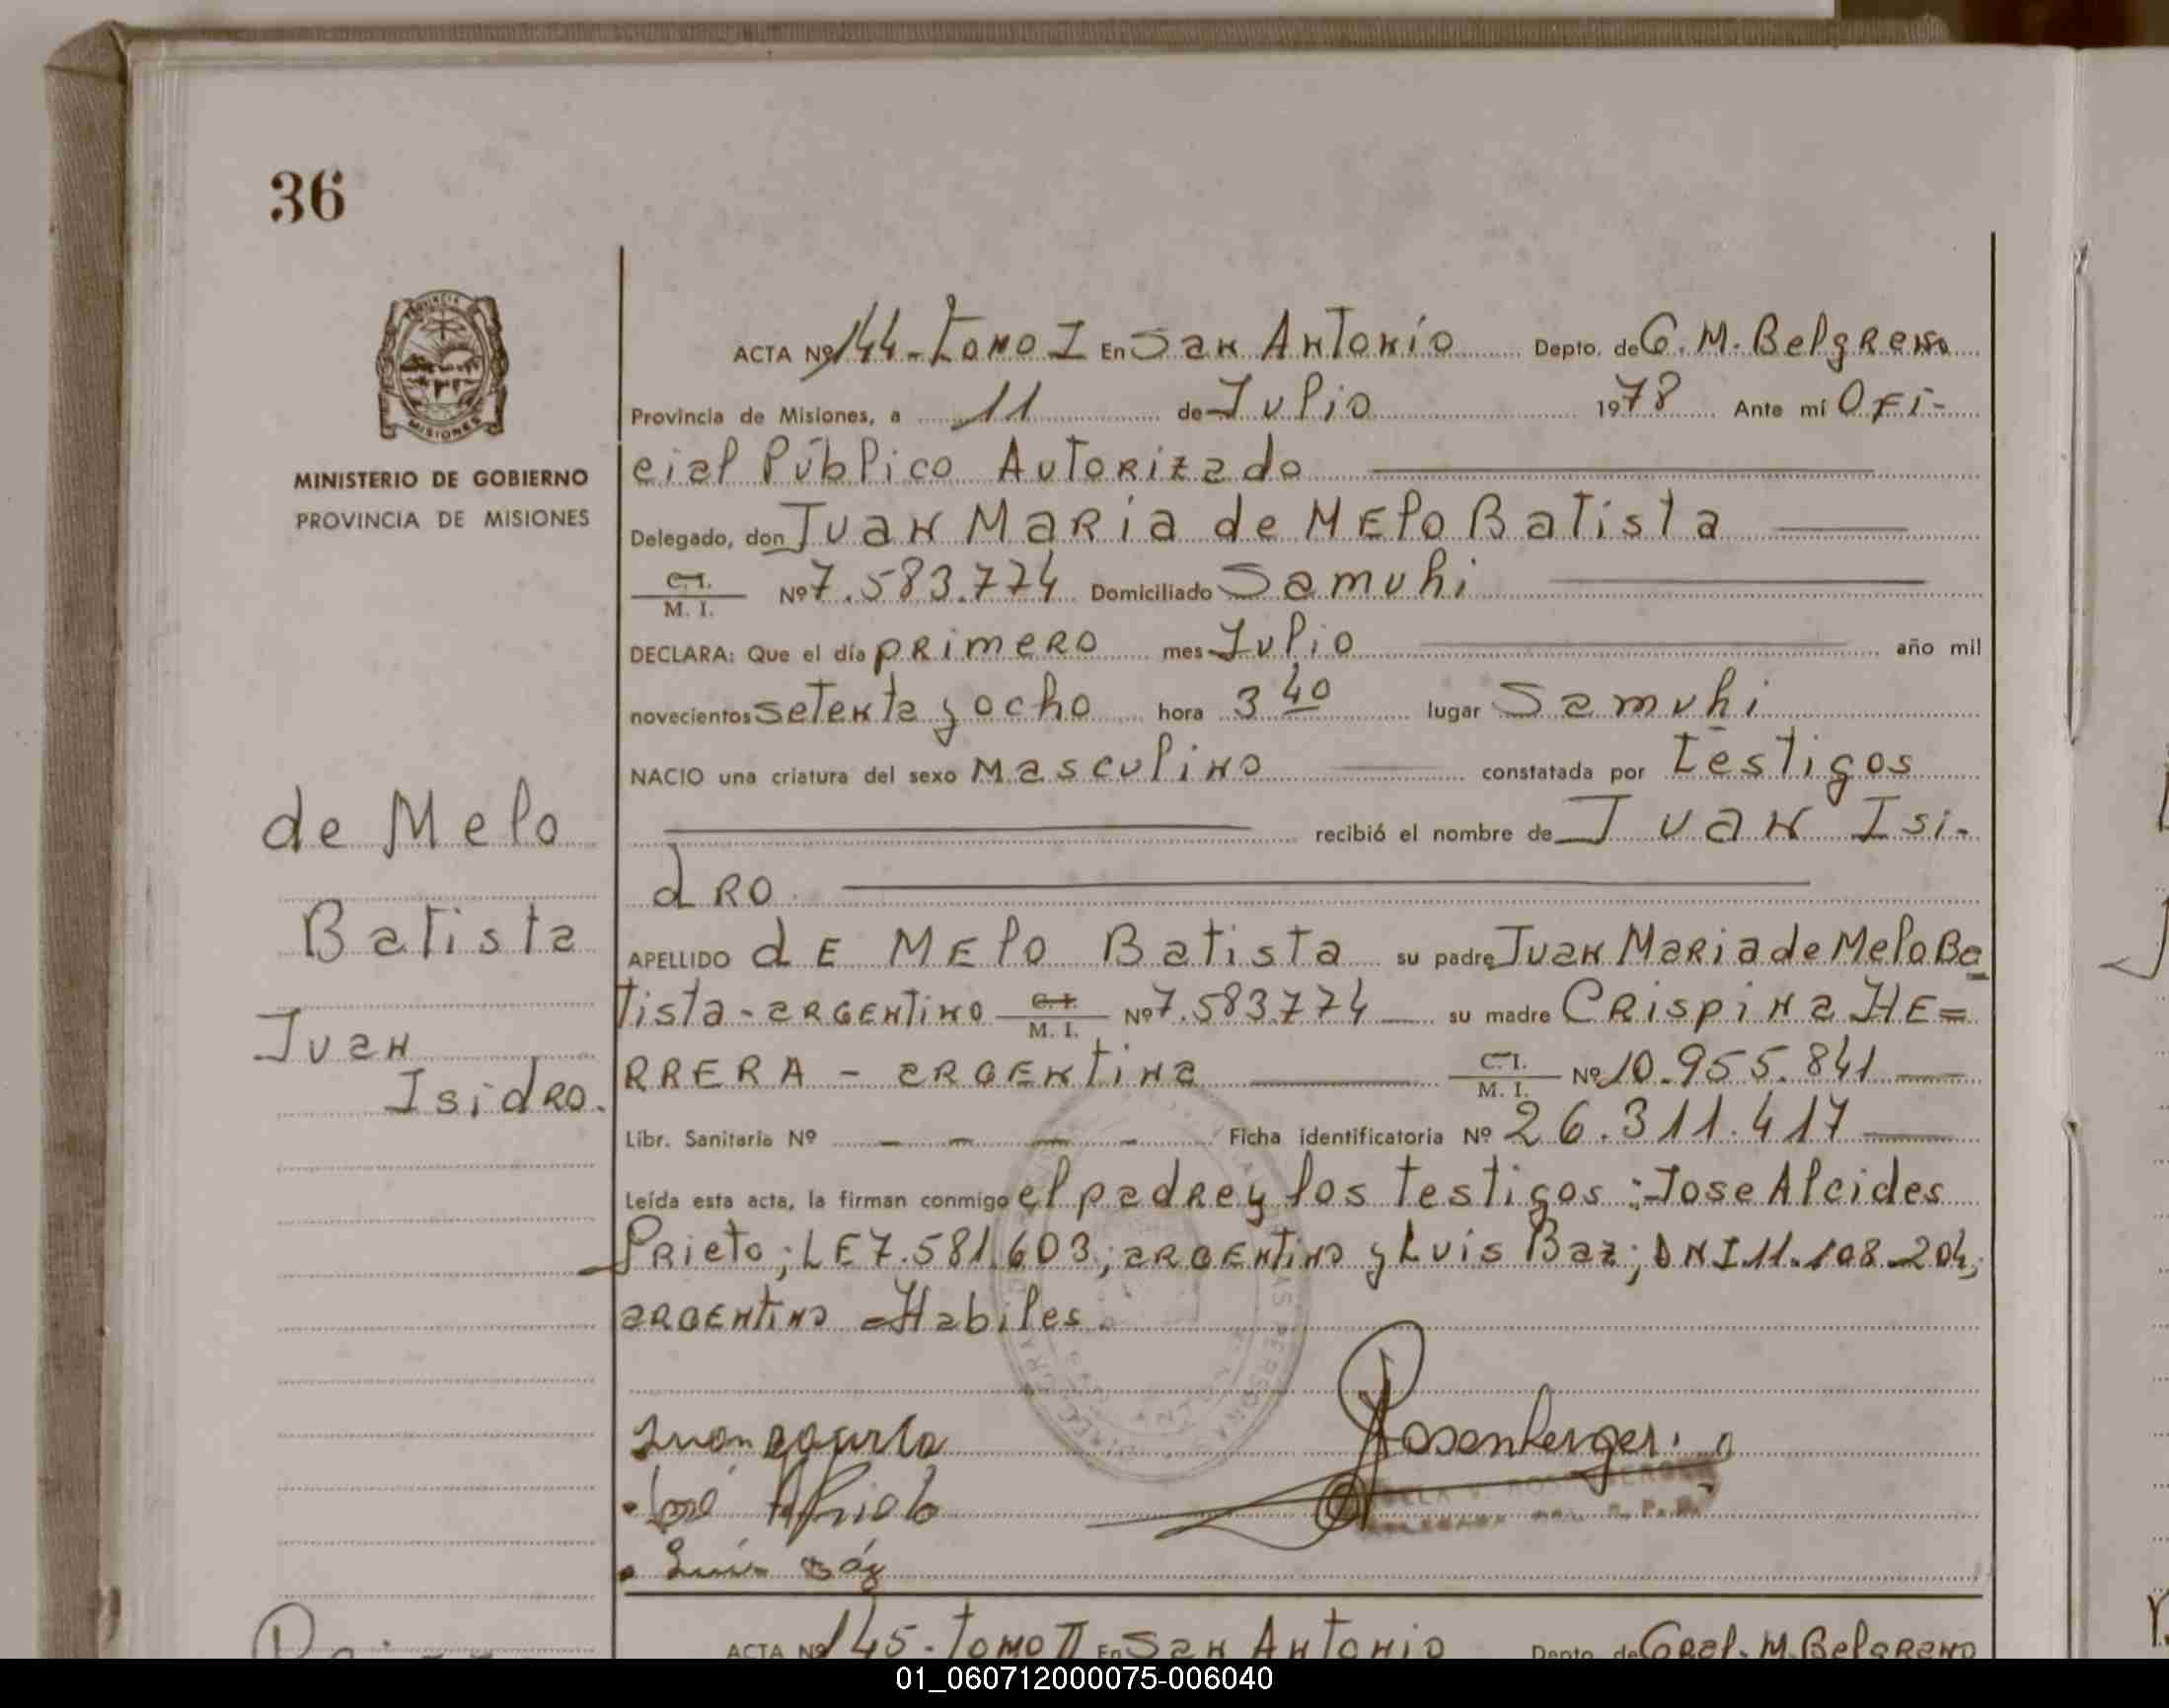 36
MINISTERIO DE GOBIERNO
PROVINCIA DE MISIONES
ACTA Nº 144 - Tomo I En San Antonio Depto. de G. M. Belgrano
Provincia de Misiones, a 11 de Julio 1978 Ante mí Ofi-
cial Público Autorizado
Delegado, don Juan Maria de Melo Batista
C.I. / M. I. Nº 7.583.774 Domiciliado Samuhi
DECLARA: Que el día primero mes Julio año mil
novecientos setenta y ocho hora 3 40 lugar Samuhi
NACIO una criatura del sexo Masculino constatada por testigos
recibió el nombre de Juan Isi-
dro
APELLIDO de Melo Batista su padre Juan Maria de Melo Ba
tista - argentino C.I. / M. I. Nº 7.583.774 su madre Crispina HE=
RRERA - argentina C.I. / M. I. Nº 10.955.841
Libr. Sanitaria Nº - - - - Ficha identificatoria Nº 26.311.417
Leída esta acta, la firman conmigo el padre y los testigos: Jose Alcides
Prieto; LE 7.581.603; argentino y Luis Baz; DNI 11.108.204;
argentino - Habiles.
Rosenberger
Luis Báz
de Melo
Batista
Juan
Isidro.
ACTA Nº 145 - Tomo II En San Antonio Depto. de Gral. M. Belgrano
01_060712000075-006040